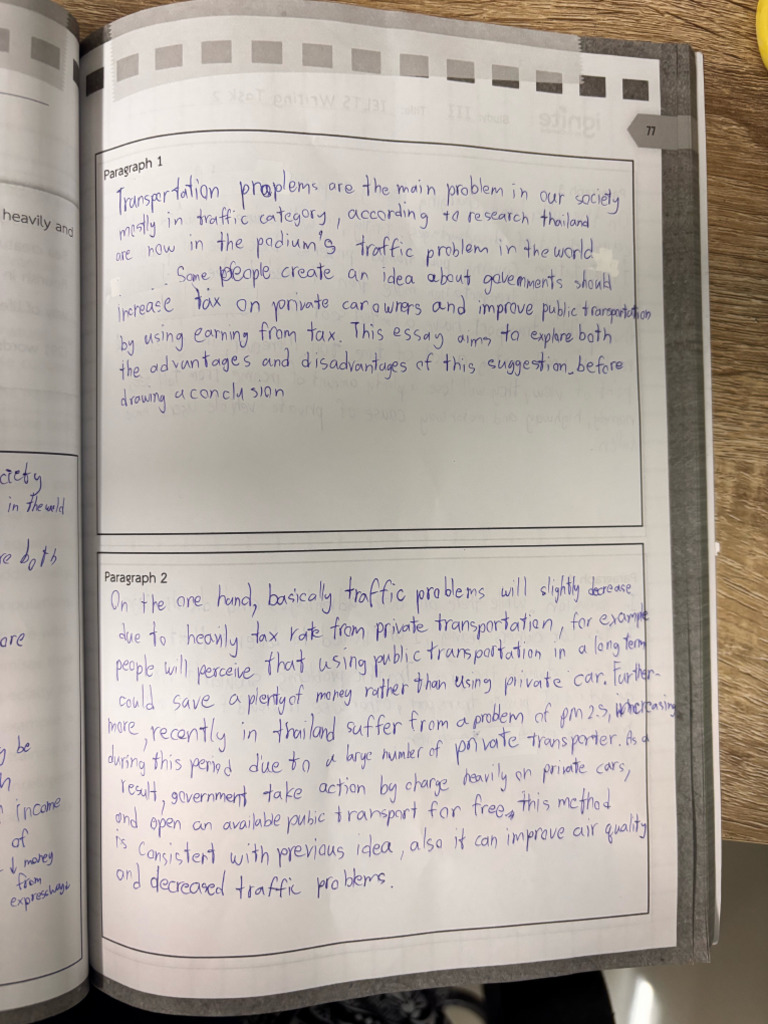 heavily and
ciety
in the
re both
ore
y be
income
of
↓ money
from
77
Paragraph 1
Transportation proplems are the main problem in our society
mostly in traffic category, according to research thailand
are now in the podium's traffic problem in the world
Some people create an idea about governments should
increase tax on private car owners and improve public transportation
by using earning from tax. This essay aims to explore both
the advantages and disadvantages of this suggestion, before
drawing a conclusion
Paragraph 2
On the one hand, basically traffic problems will slightly decrease
due to heavily tax rate from private transportation, for example
people will perceive that using public transportation in a long term
could save a plenty of money rather than using private car. Further-
more, recently in thailand suffer from a problem of pm 2.5, increasing
during this period due to a large number of private transporter. As a
result, government take action by charge heavily on private cars,
and open an available pubic transport for free, this method
is consistent with previous idea, also it can improve air quality
and decreased traffic problems.